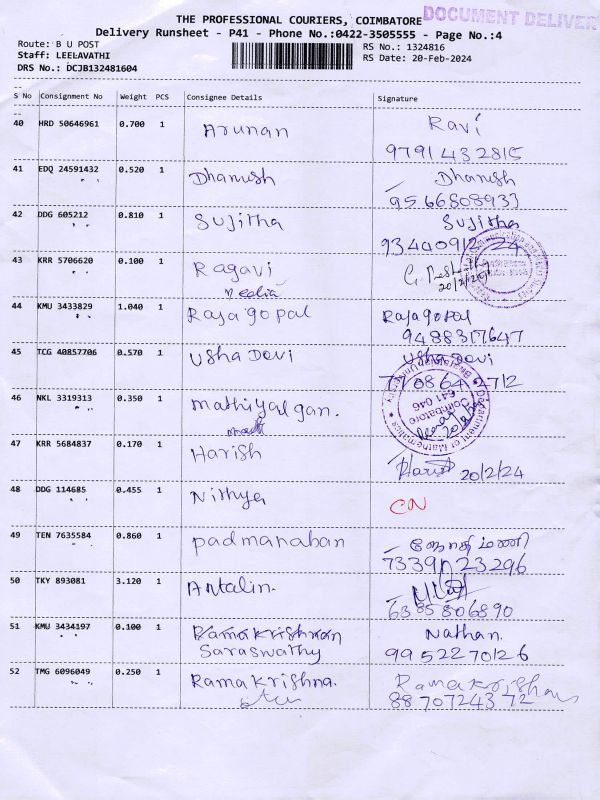 THE PROFESSIONAL COURIERS, COIMBATORE
DOCUMENT DELIVER
Delivery Runsheet - P41 - Phone No.:0422-3505555 - Page No.:4
Route: B U POST
RS No.: 1324816
Staff: LEELAVATHI
RS Date: 20-Feb-2024
DRS No.: DCJB132481604
S No Consignment No Weight PCS Consignee Details Signature
40 HRD 50646961 0.700 1 Arunan Ravi
9791432815
41 EDQ 24591432 0.520 1 Dhanush Dhanush
9566808933
42 DDG 605212 0.810 1 Sujitha Sujitha
43 KRR 5706620 0.100 1 Ragavi
Media
20/2/24
44 KMU 3433829 1.040 1 Rajagopal Rajagopal
9488317647
45 TCG 40857706 0.570 1 Usha Devi Usha Devi
46 NKL 3319313 0.350 1 Mathiyalgan.
Department of Mathematics
Coimbatore
641 046
47 KRR 5684837 0.170 1 Harish Harish 20/2/24
48 DDG 114685 0.455 1 Nithya CN
49 TEN 7635584 0.860 1 padmanaban ஜோதிமணி
7339123296
50 TKY 893081 3.120 1 Antalin.
6385806890
51 KMU 3434197 0.100 1 Ramakrishnan Nathan.
Saraswathy 9952270126
52 TMG 6096049 0.250 1 Ramakrishna. Ramakrishnan
8870724372